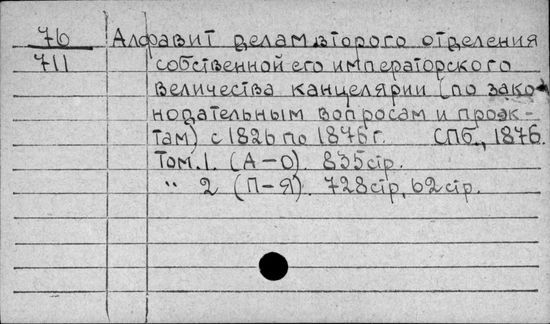 76 Алфавит делам второго отделения
711 собственной его императорского
величества канцелярии (по зако-
нодательным вопросам и проэк-
там) с 1826 по 1876 г. СПб., 1876.
Том. 1. (А–О). 835 стр.
" 2 (П–Я). 728 стр, 62 стр.